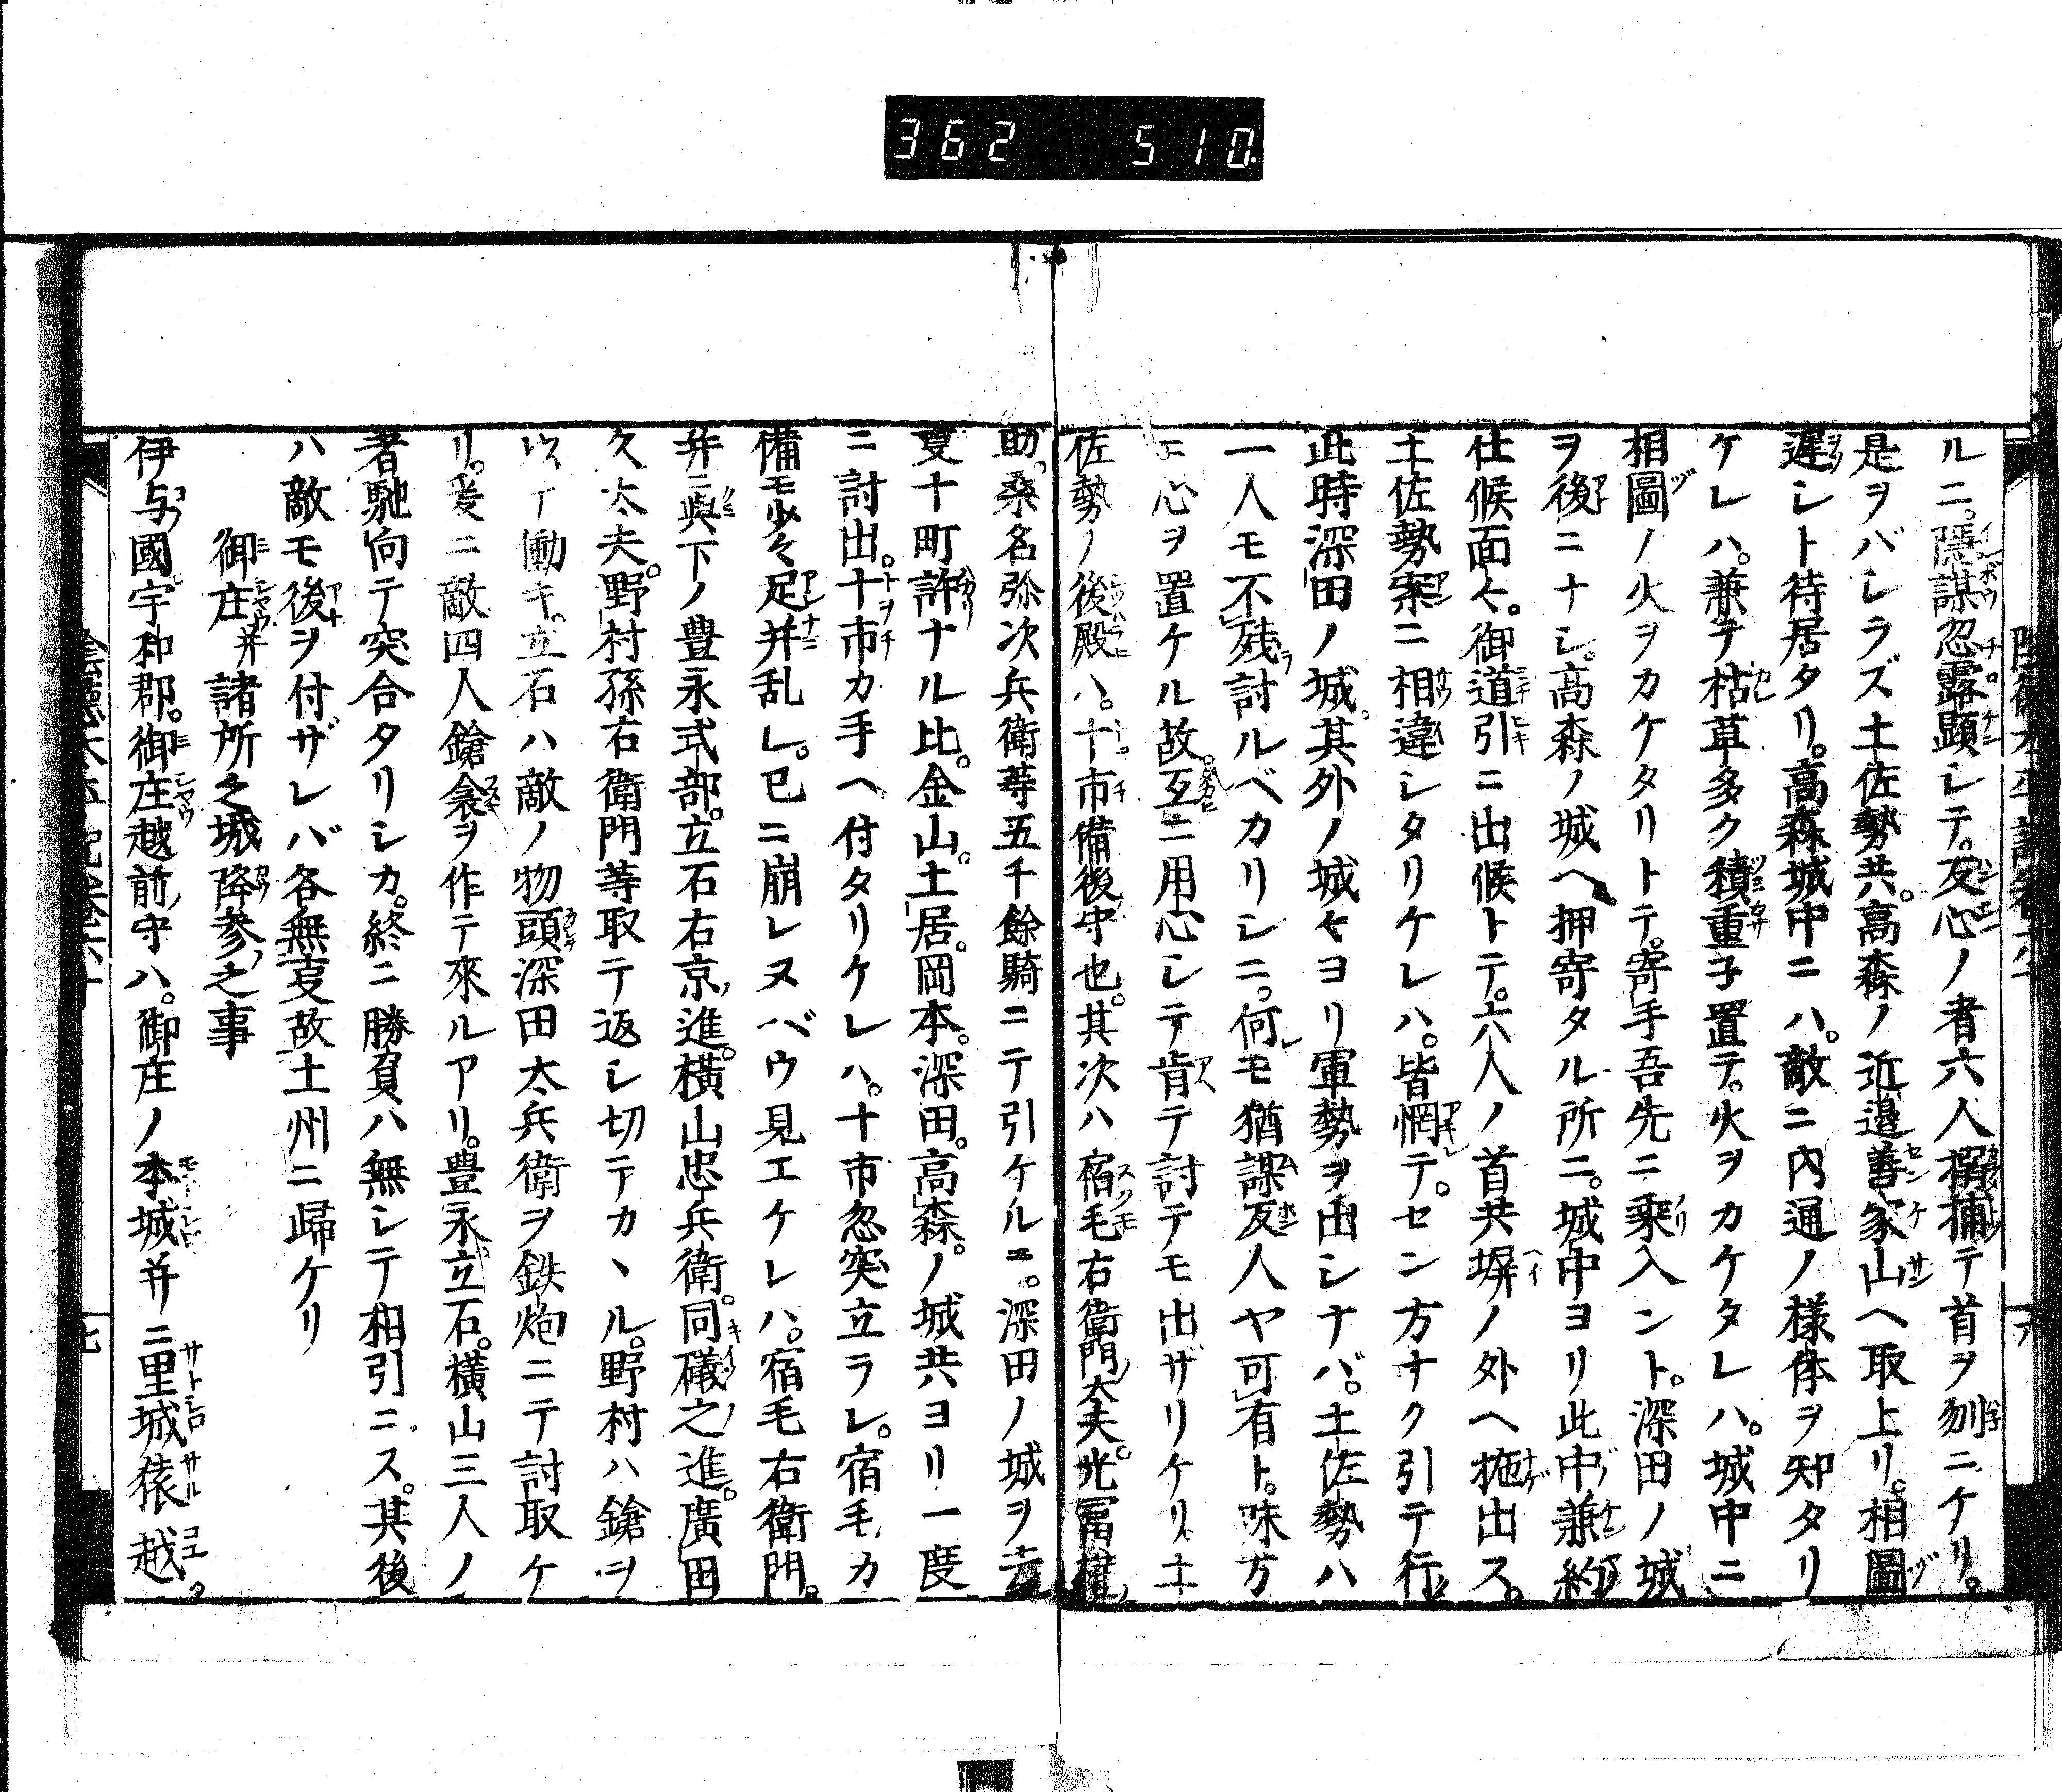 362 510
ルニ。隱謀忽露顯シテ。反心ノ者六人搦捕テ首ヲ刎ニケリ。
是ヲバシラズ土佐勢共。高森ノ近邉善家山ヘ取上リ。相圖
遅シト待居タリ。高森城中ニハ。敵ニ内通ノ様体ヲ知タリ
ケレハ。兼テ枯草多ク積重子置テ。火ヲカケタレハ。城中ニ
相圖ノ火ヲカケタリトテ。寄手吾先ニ乗入ント。深田ノ城
ヲ後ニナシ。高森ノ城ヘ押寄タル所ニ。城中ヨリ此中兼約
仕候面々。御道引ニ出候トテ。六人ノ首共塀ノ外ヘ抛出ス。
土佐勢案ニ相違シタリケレハ。皆惘テ。セン方ナク引テ行
此時深田ノ城。其外ノ城々ヨリ軍勢ヲ出シナバ。土佐勢ハ
一人モ不残討ルベカリシニ。何モ猶謀反人ヤ可有ト。味方
ニ心ヲ置ケル故。互ニ用心シテ肯テ討テモ出ザリケリ。土
佐勢ノ後殿ハ。十市備後守也。其次ハ宿毛右衛門太夫。光冨權
助。桑名弥次兵衛等五千餘騎ニテ引ケルニ。深田ノ城ヲ去
㕝十町許ナル比。金山。土居。岡本。深田。高森。ノ城共ヨリ一度
ニ討出。十市カ手ヘ付タリケレハ。十市忽突立ラレ。宿毛カ
備モ少々足并乱レ。已ニ崩レヌベウ見エケレハ。宿毛右衛門。
并ニ與下ノ豊永式部。立石右京進。横山忠兵衛。同礒之進。廣田
久太夫。野村孫右衛門等取テ返シ切テカヽル。野村ハ鎗ヲ
以テ働キ。立石ハ敵ノ物頭深田太兵衛ヲ鉄炮ニテ討取ケ
リ。爰ニ敵四人鎗衾ヲ作テ來ルアリ。豊永立石。横山三人ノ
者馳向テ突合タリシカ。終ニ勝負ハ無シテ相引ニス。其後
ハ敵モ後ヲ付ザレバ各無㕝故土州ニ歸ケリ
御庄并諸所之城降参之事
伊与國宇和郡。御庄越前守ハ。御庄ノ本城并ニ里城猿越。